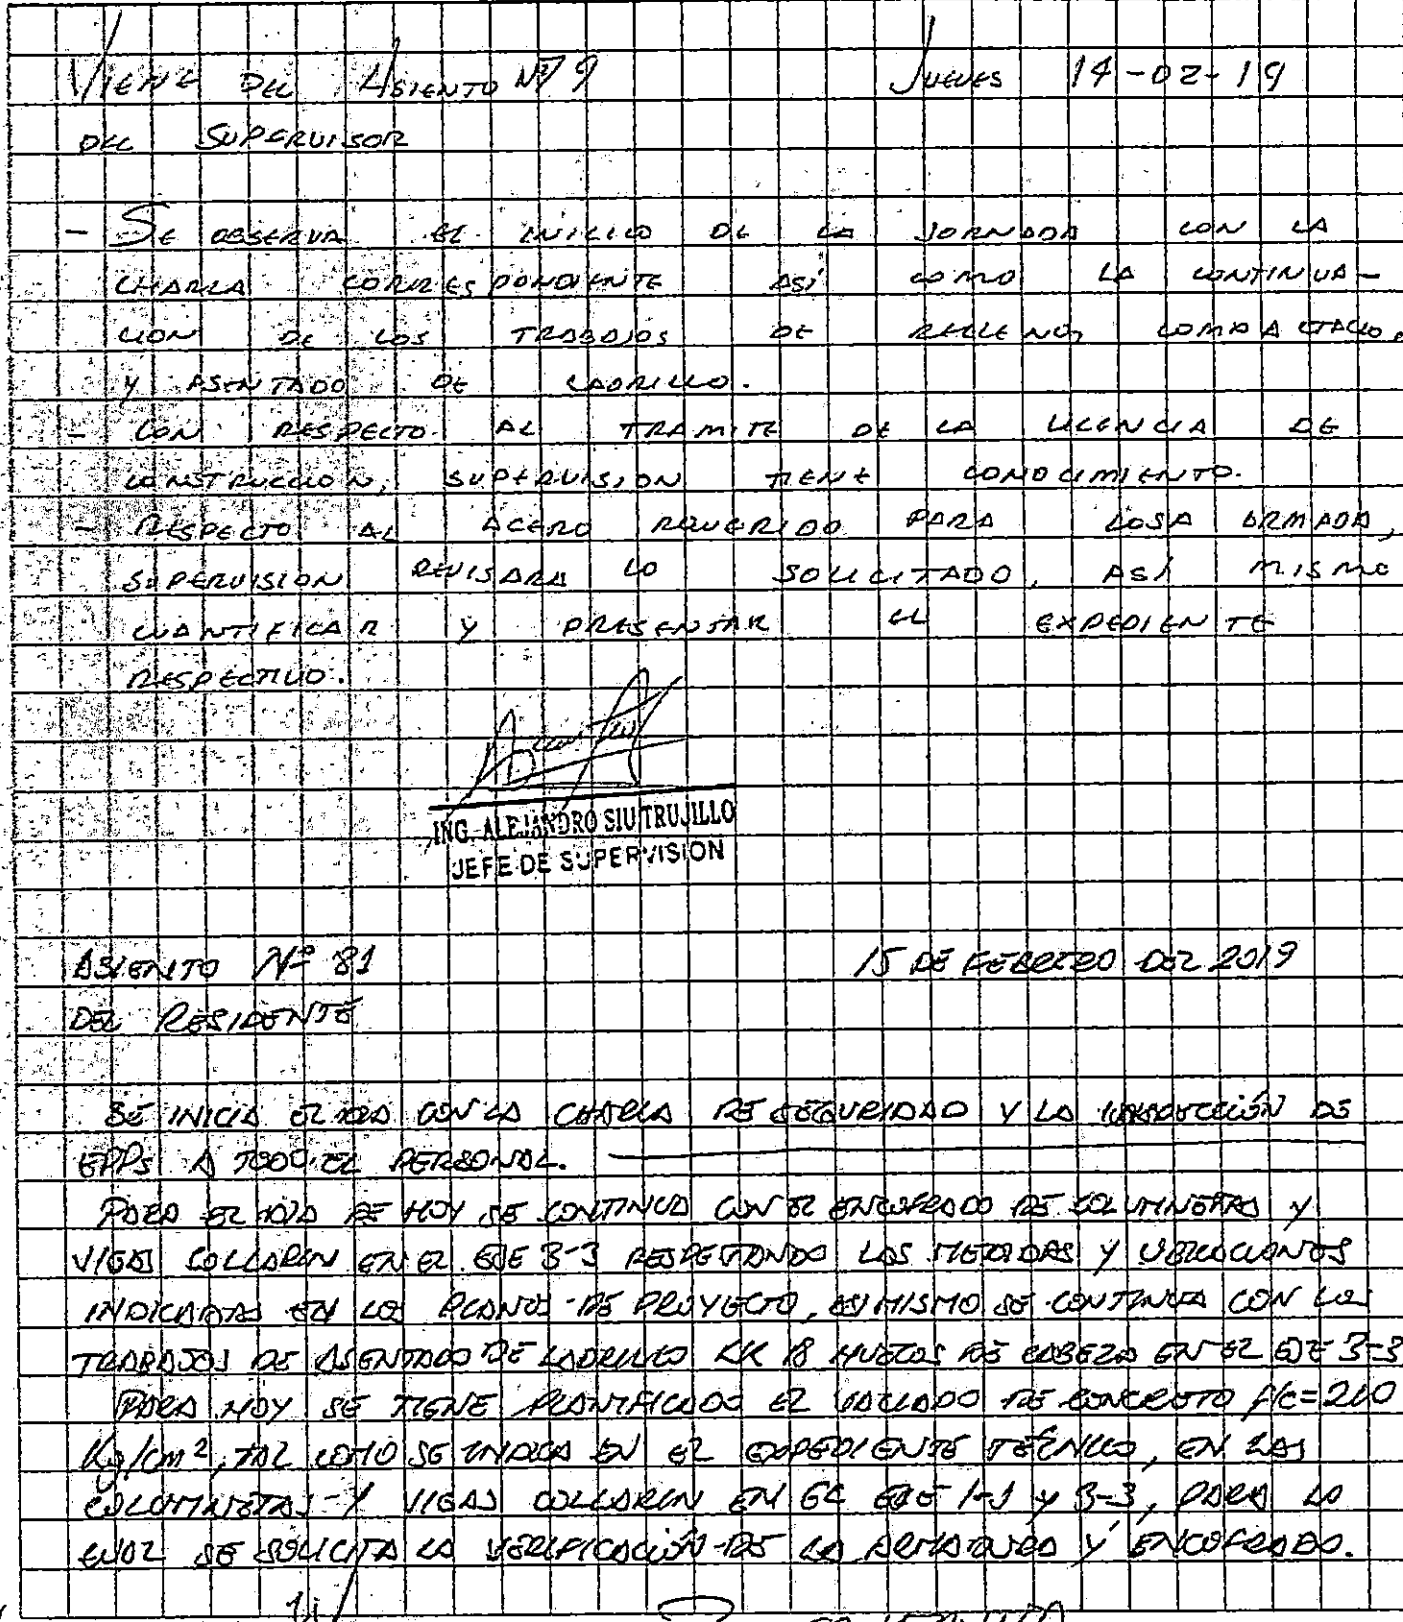 VIENE DEL ASIENTO Nº 79 JUEVES 14-02-19
DEL SUPERVISOR
- SE OBSERVA EL INICIO DE LA JORNADA CON LA
CHARLA CORRESPONDIENTE ASÍ COMO LA CONTINUA-
CION DE LOS TRABAJOS DE RELLENO, COMPACTACIO.
Y ASENTADO DE LADRILLO.
- CON RESPECTO AL TRAMITE DE LA LICENCIA DE
CONSTRUCCION, SUPERVISION TIENE CONOCIMIENTO.
- RESPECTO AL ACERO REQUERIDO PARA LOSA ARMADA,
SUPERVISION REVISARA LO SOLICITADO, ASÍ MISMO
CUANTIFICAR Y PRESENTAR EL EXPEDIENTE
RESPECTIVO.
ING. ALEJANDRO SIU TRUJILLO
JEFE DE SUPERVISION
ASIENTO Nº 81 15 DE FEBRERO DEL 2019
DEL RESIDENTE
SE INICIA EL DIA CON LA CHARLA DE SEGURIDAD Y LA INSPECCIÓN DE
EPPS A TODO EL PERSONAL.
PARA EL DIA DE HOY SE CONTINUA CON EL ENCOFRADO DE COLUMNETAS Y
VIGAS COLLARIN EN EL EJE 3-3 RESPETANDO LAS MEDIDAS Y UBICACIONES
INDICADAS EN LOS PLANOS DE PROYECTO, ASIMISMO SE CONTINUA CON LOS
TRABAJOS DE ASENTADO DE LADRILLO KK 18 HUECOS DE CABEZA EN EL EJE 3-3
PARA HOY SE TIENE PLANIFICADO EL VACIADO DE CONCRETO f'c=210
Kg/cm², TAL COMO SE INDICA EN EL EXPEDIENTE TÉCNICO, EN LAS
COLUMNETAS Y VIGAS COLLARIN EN EL EJE 1-1 y 3-3, PARA LO
CUAL SE SOLICITA LA VERIFICACIÓN DE LA ARMADURA Y ENCOFRADO.